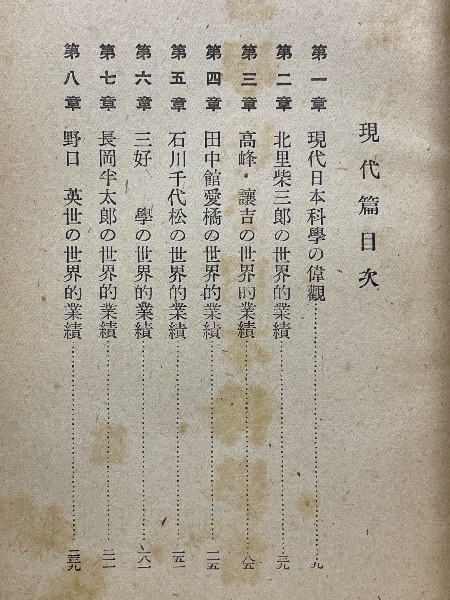 現代篇目次
第一章 現代日本科學の偉觀……九
第二章 北里柴三郎の世界的業績……三九
第三章 高峰・讓吉の世界的業績……八五
第四章 田中館愛橘の世界的業績……一二五
第五章 石川千代松の世界的業績……一五一
第六章 三好 學の世界的業績……一八一
第七章 長岡半太郎の世界的業績……二一一
第八章 野口 英世の世界的業績……二三九